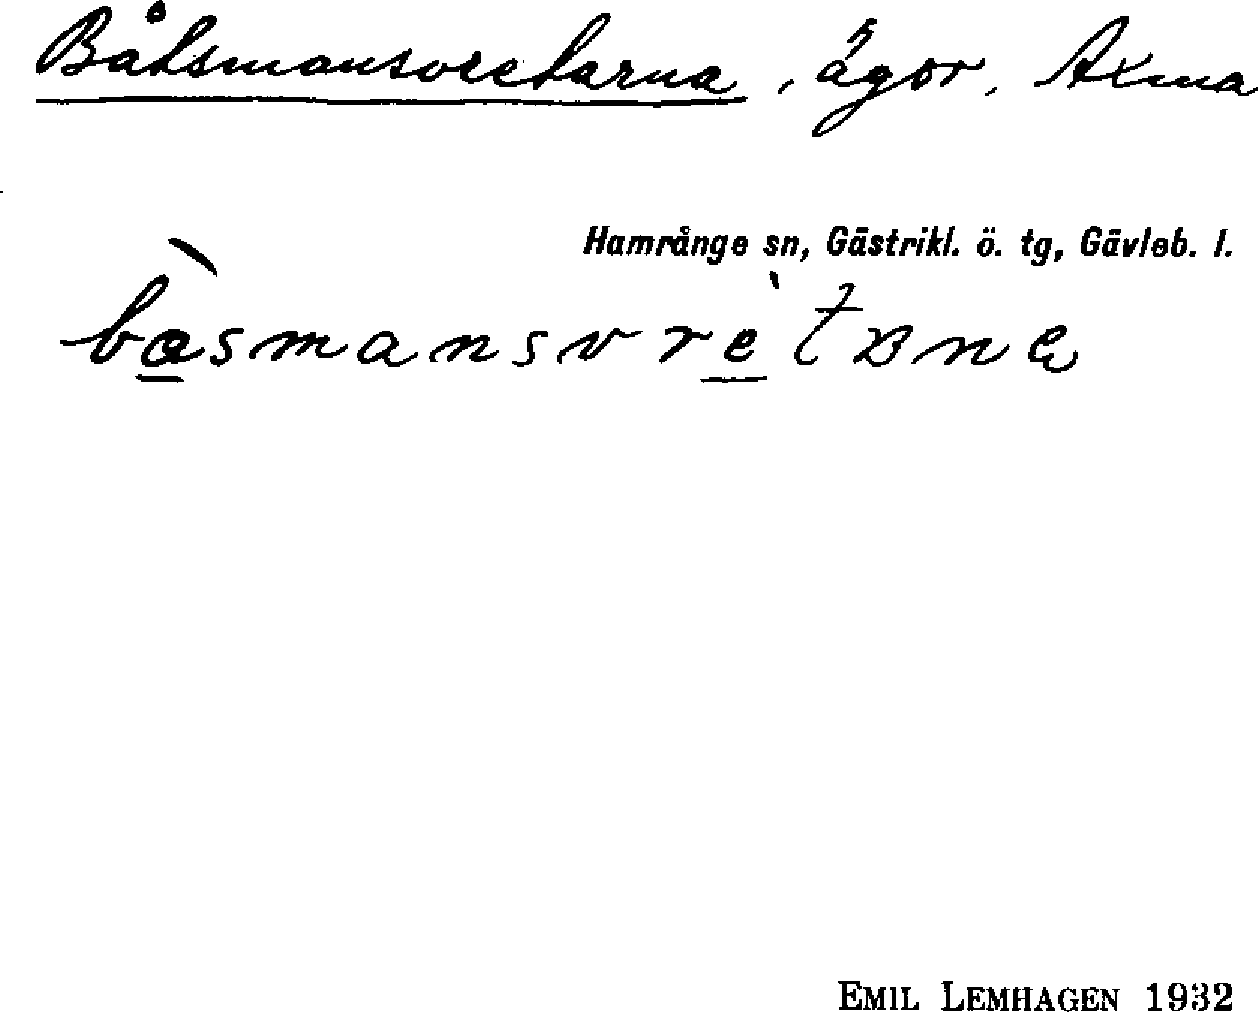 Båtsmansvretarna, ägor, Axma
Hamrånge sn, Gästrikl. ö. tg, Gävleb. l.
EMIL LEMHAGEN 1932